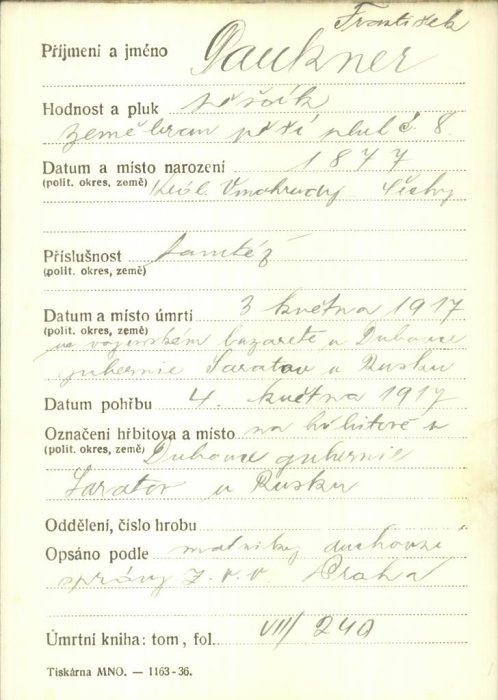 František
Příjmení a jméno Daukner
Hodnost a pluk pěšák
zeměbran pěší pluk č. 8.
Datum a místo narození 1877
(polit. okres, země) Král. Vinohrady Čechy
Příslušnost tamtéž
(polit. okres, země)
Datum a místo úmrtí 3 května 1917
(polit. okres, země)
ve vojenském lazarete v Dubovce
gubernie Saratov v Rusku
Datum pohřbu 4. května 1917
Označení hřbitova a místo na hřbitově v
(polit. okres, země) Dubovce gubernie
Saratov v Rusku
Oddělení, číslo hrobu
Opsáno podle matriky duchovní
správy z. v. v. Praha
Úmrtní kniha: tom, fol. VII/240
Tiskárna MNO. — 1163-36.